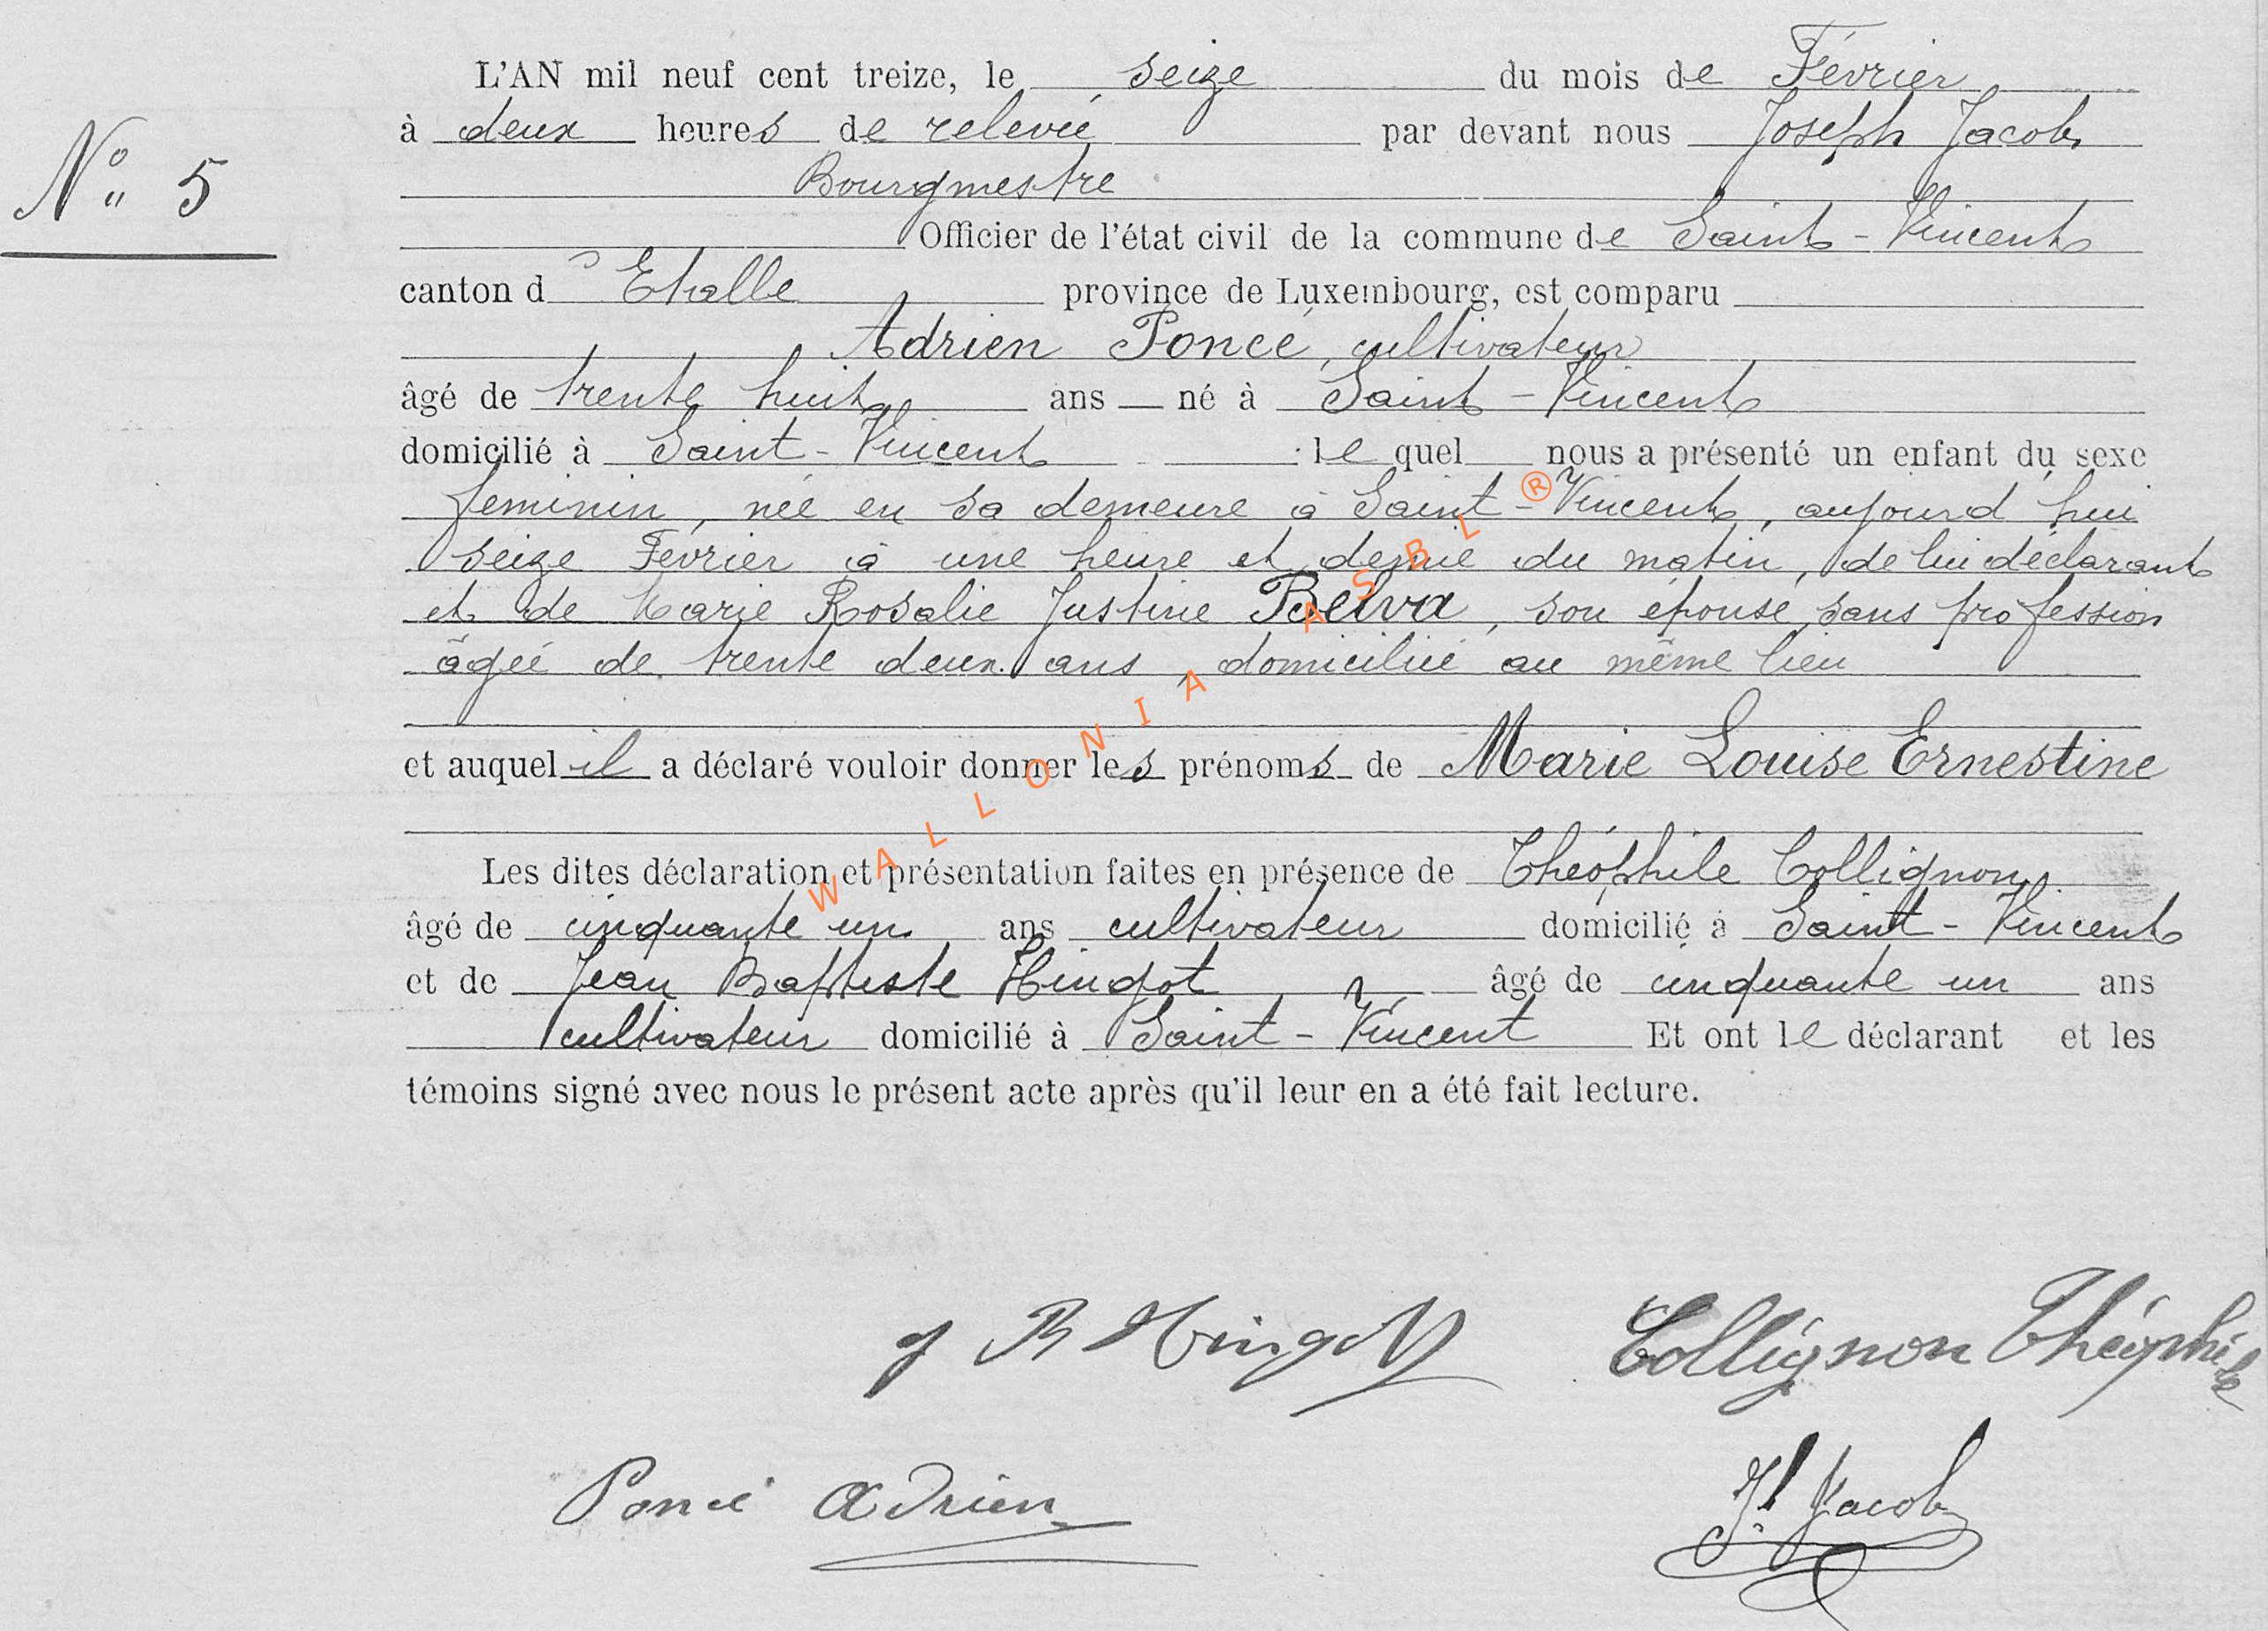 L'AN mil neuf cent treize, le seize du mois de Février
à deux heures de relevée par devant nous Joseph Jacob
N° 5
Bourgmestre
Officier de l'état civil de la commune de Saint-Vincent
canton d'Etalle province de Luxembourg, est comparu
Adrien Poncé, cultivateur
âgé de trente huit ans né à Saint-Vincent
domicilié à Saint-Vincent lequel nous a présenté un enfant du sexe
feminin, née en sa demeure à Saint-Vincent, aujourd'hui
seize Février à une heure et demie du matin, de lui déclarant
et de Marie Rosalie Justine Belva, son épouse, sans profession
âgée de trente deux ans, domiciliée au même lieu
et auquel il a déclaré vouloir donner les prénoms de Marie Louise Ernestine
Les dites déclaration et présentation faites en présence de Théophile Collignon
âgé de cinquante un ans cultivateur domicilié à Saint-Vincent
et de Jean Baptiste Hingot âgé de cinquante un ans
cultivateur domicilié à Saint-Vincent Et ont le déclarant et les
témoins signé avec nous le présent acte après qu'il leur en a été fait lecture.
J B Hingot Collignon Théophile
Poncé Adrien Js Jacob
WALLONIA ASBL ®